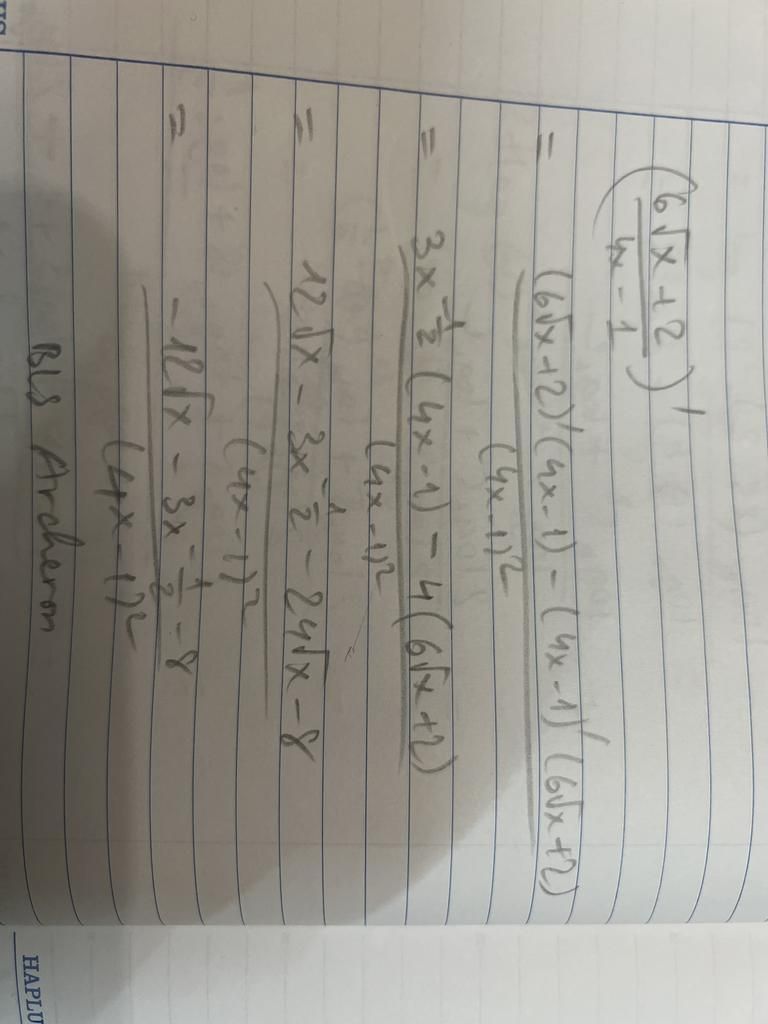 ((6√x + 2)/(4x - 1))'
= ((6√x+2)'(4x-1) - (4x-1)'(6√x+2))/(4x-1)²
= (3x^(-1/2) (4x-1) - 4(6√x+2))/(4x-1)²
= (12√x - 3x^(-1/2) - 24√x - 8)/(4x-1)²
= (-12√x - 3x^(-1/2) - 8)/(4x-1)²
BLS Archeron
HAPLU
US